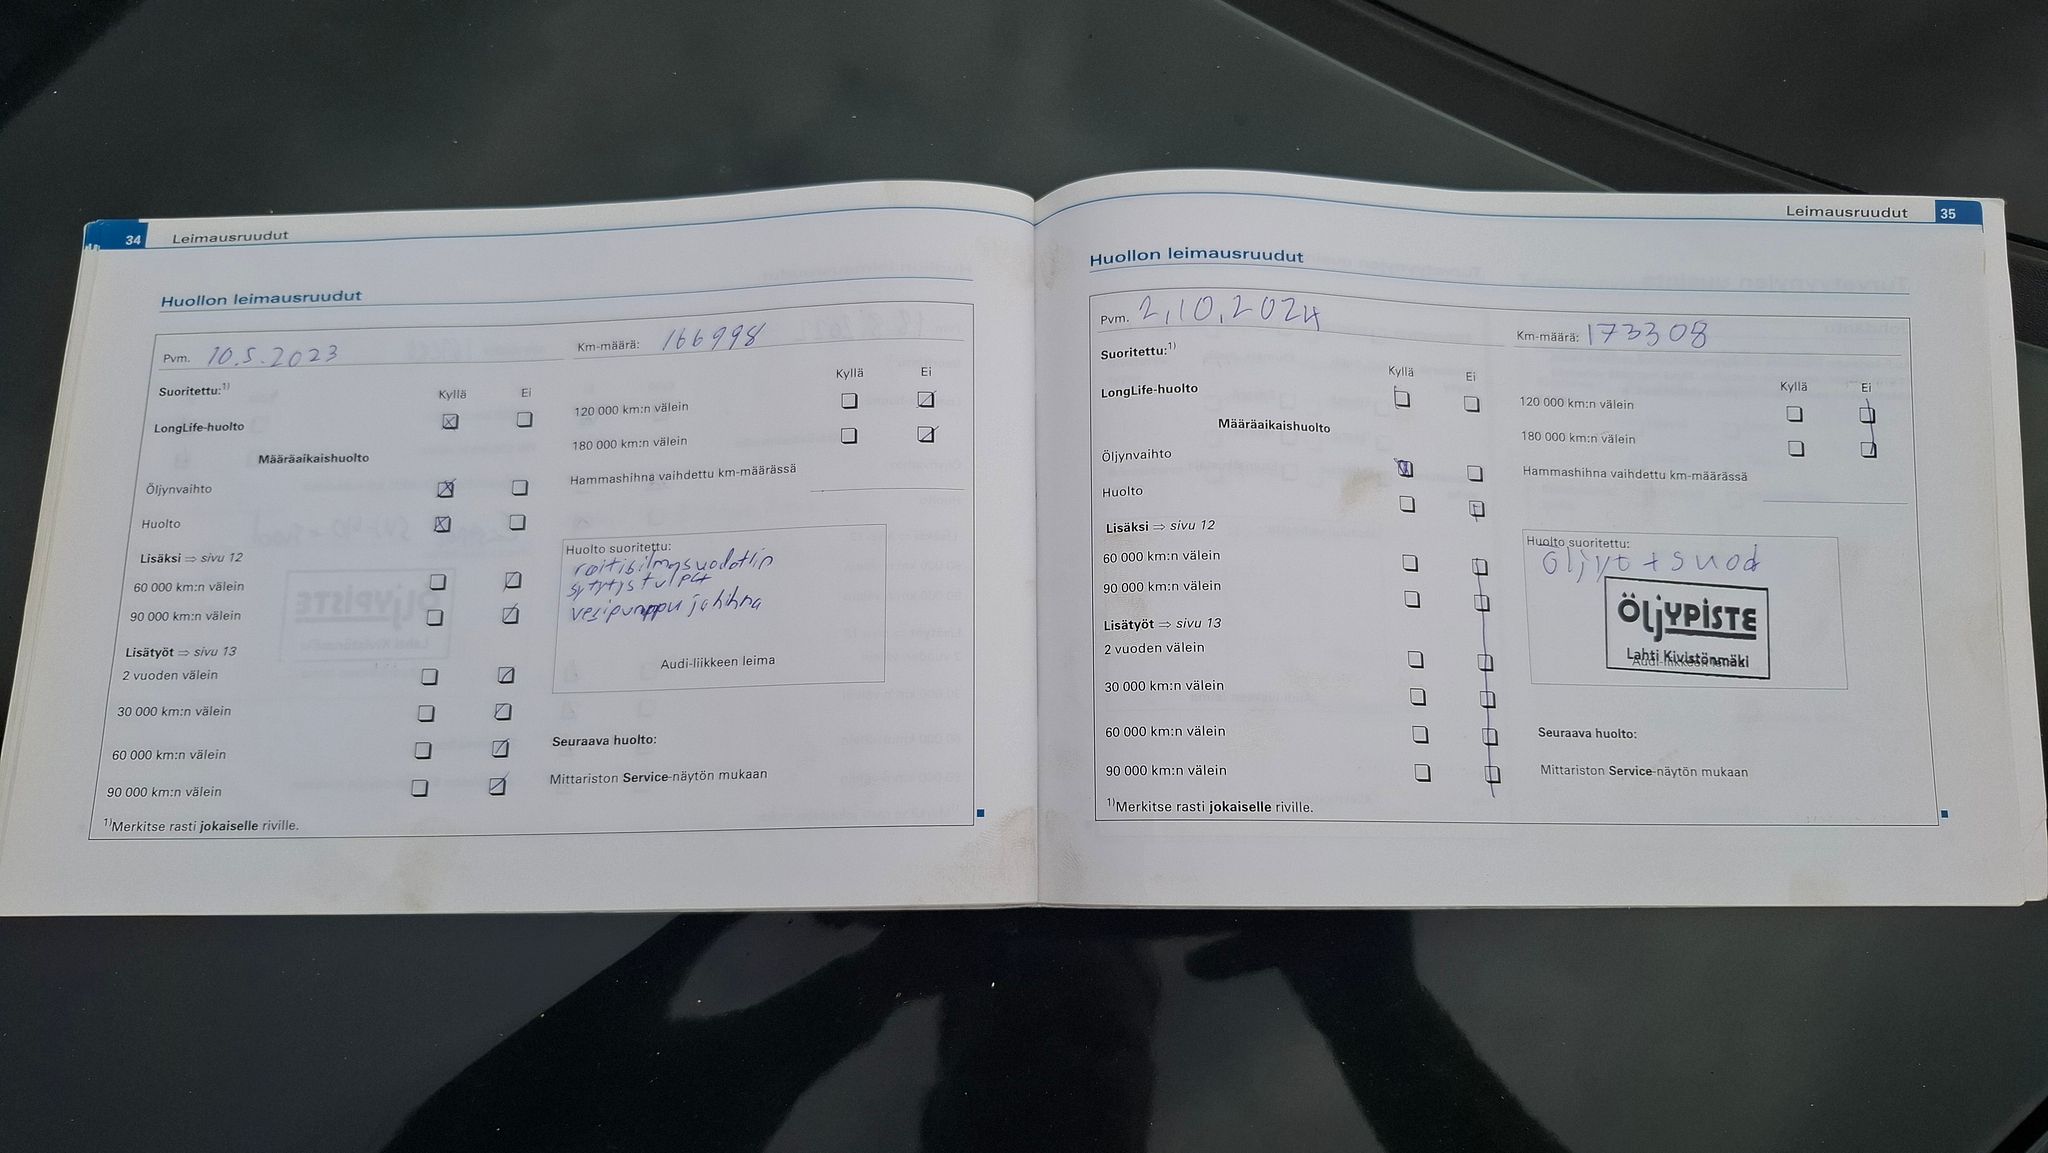 34 Leimausruudut
Huollon leimausruudut
Pvm. 10.5.2023
Km-määrä: 166998
Suoritettu:1)
Kyllä Ei
LongLife-huolto
Määräaikaishuolto
Öljynvaihto
Huolto
Lisäksi ⇒ sivu 12
60 000 km:n välein
90 000 km:n välein
Lisätyöt ⇒ sivu 13
2 vuoden välein
30 000 km:n välein
60 000 km:n välein
90 000 km:n välein
1)Merkitse rasti jokaiselle riville.
Kyllä Ei
120 000 km:n välein
180 000 km:n välein
Hammashihna vaihdettu km-määrässä
Huolto suoritettu:
raitisilmasuodatin
sytytystulpat
vesipumppu ja hihna
Audi-liikkeen leima
Seuraava huolto:
Mittariston Service-näytön mukaan
Leimausruudut 35
Huollon leimausruudut
Pvm. 2.10.2024
Km-määrä: 173308
Suoritettu:1)
Kyllä Ei
LongLife-huolto
Määräaikaishuolto
Öljynvaihto
Huolto
Lisäksi ⇒ sivu 12
60 000 km:n välein
90 000 km:n välein
Lisätyöt ⇒ sivu 13
2 vuoden välein
30 000 km:n välein
60 000 km:n välein
90 000 km:n välein
1)Merkitse rasti jokaiselle riville.
Kyllä Ei
120 000 km:n välein
180 000 km:n välein
Hammashihna vaihdettu km-määrässä
Huolto suoritettu:
öljyt + suod
ÖLJYPISTE
Lahti Kivistönmäki
Audi-liikkeen leima
Seuraava huolto:
Mittariston Service-näytön mukaan